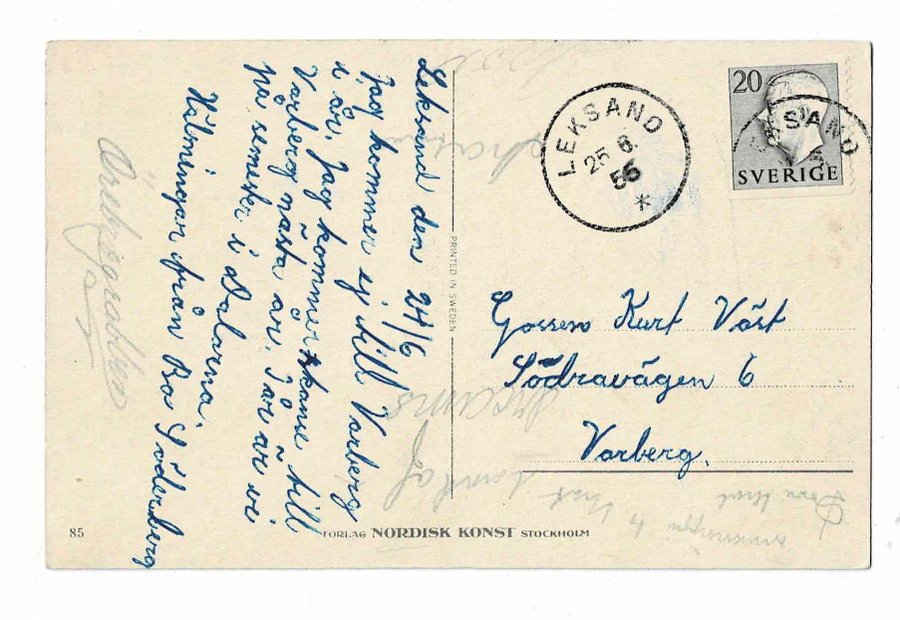 Leksand den 24/6
Jag kommer ej till Varberg
i år. Jag kommer kanske till
Varberg nästa år. I år är vi
på semester i Dalarna.
Hälningar från Bo Söderberg
LEKSAND
25 6.
56
*
20
SVERIGE
LEKSAND
PRINTED IN SWEDEN
Gossen Kurt Väst
Södravägen 6
Varberg.
85
FÖRLAG NORDISK KONST STOCKHOLM